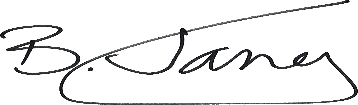 B. Janey